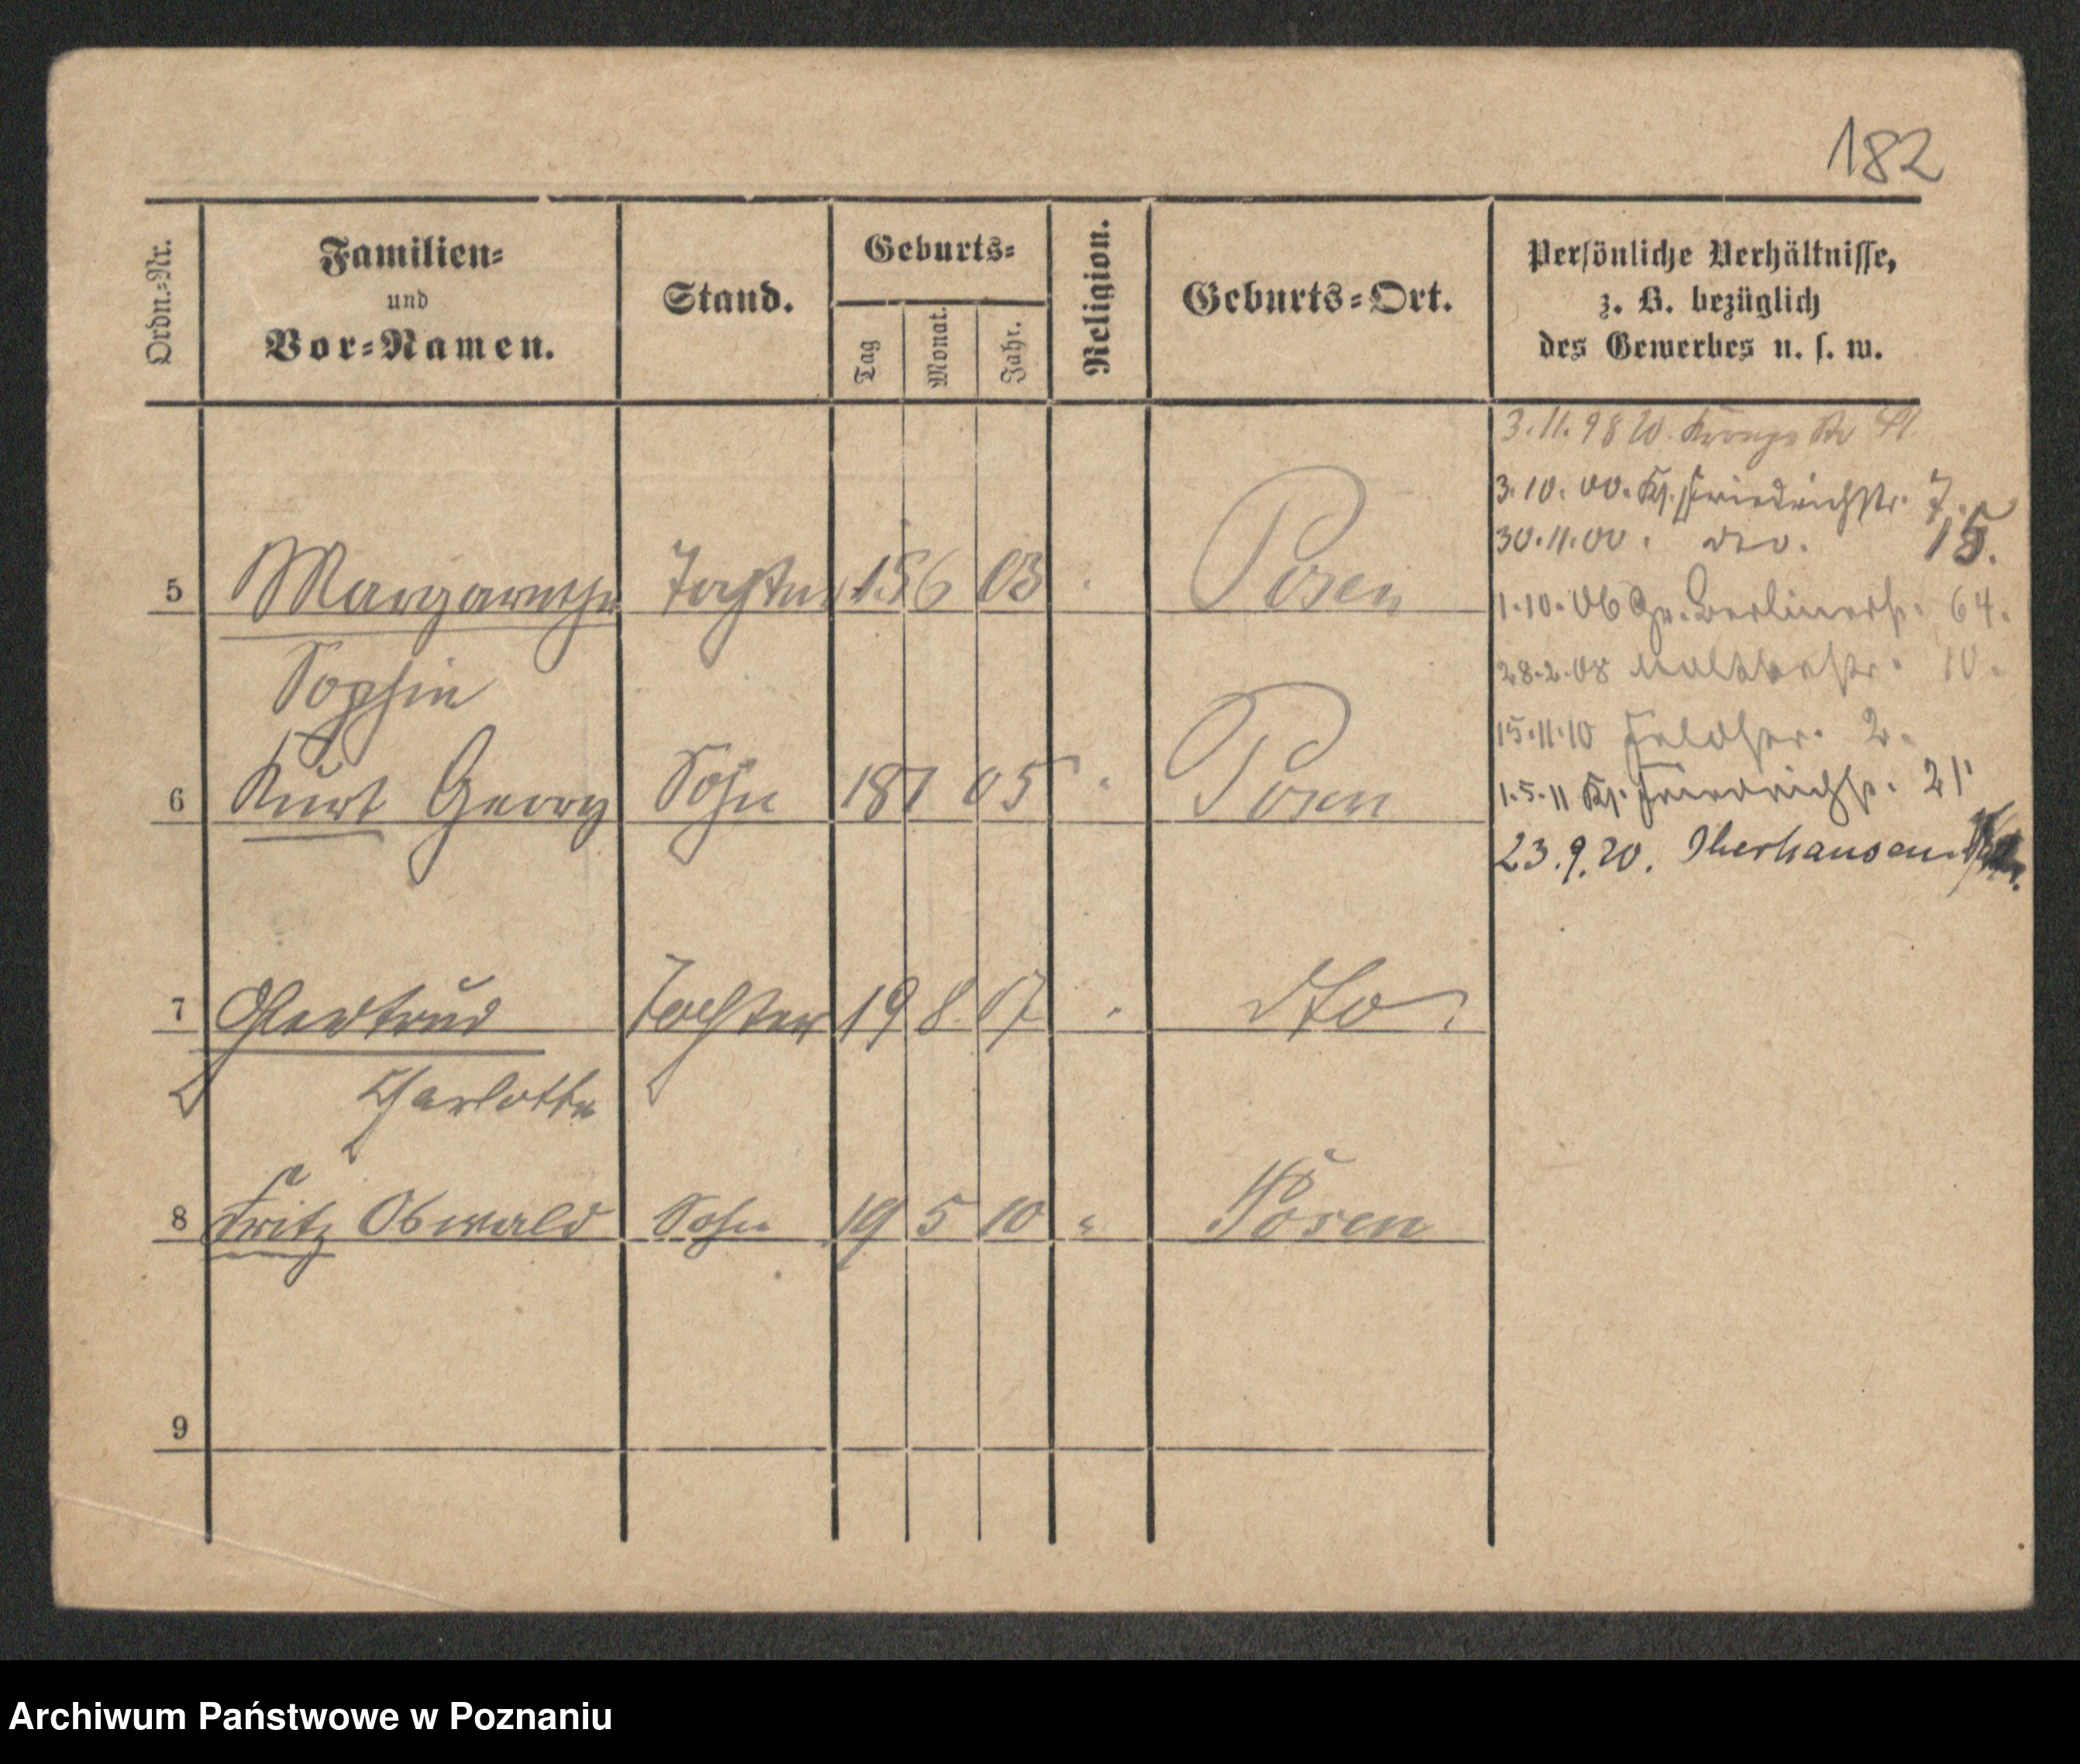 182
Ordn.-Nr.
Familien-
und
Vor-Namen.
Stand.
Geburts-
Tag
Monat.
Jahr.
Religion.
Geburts-Ort.
Persönliche Verhältnisse,
z. B. bezüglich
des Gewerbes u. s. w.
3.11.98 W.
3.10.00. Kl. Friedrichstr. 7.
30.11.00. dto. 15.
5 Margarethe Tochter 15 6 03 Posen
1.10.06 Gr. Berlinerstr. 64.
Sophie
28.2.08 Moltkestr. 10.
15.11.10 2.
6 Kurt Georg Sohn 18 7 05 " Posen
1.5.11 Kl. Friedrichstr. 21
23.9.20. Oberhausen
7 Gertrud Tochter 19 8. 07 " dto
Charlotte
8 Fritz Oswald Sohn 19 5 10 " Posen
9
Archiwum Państwowe w Poznaniu